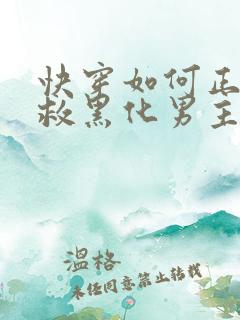 快穿如何正
救黑化男主
温格
未经同意禁止转载